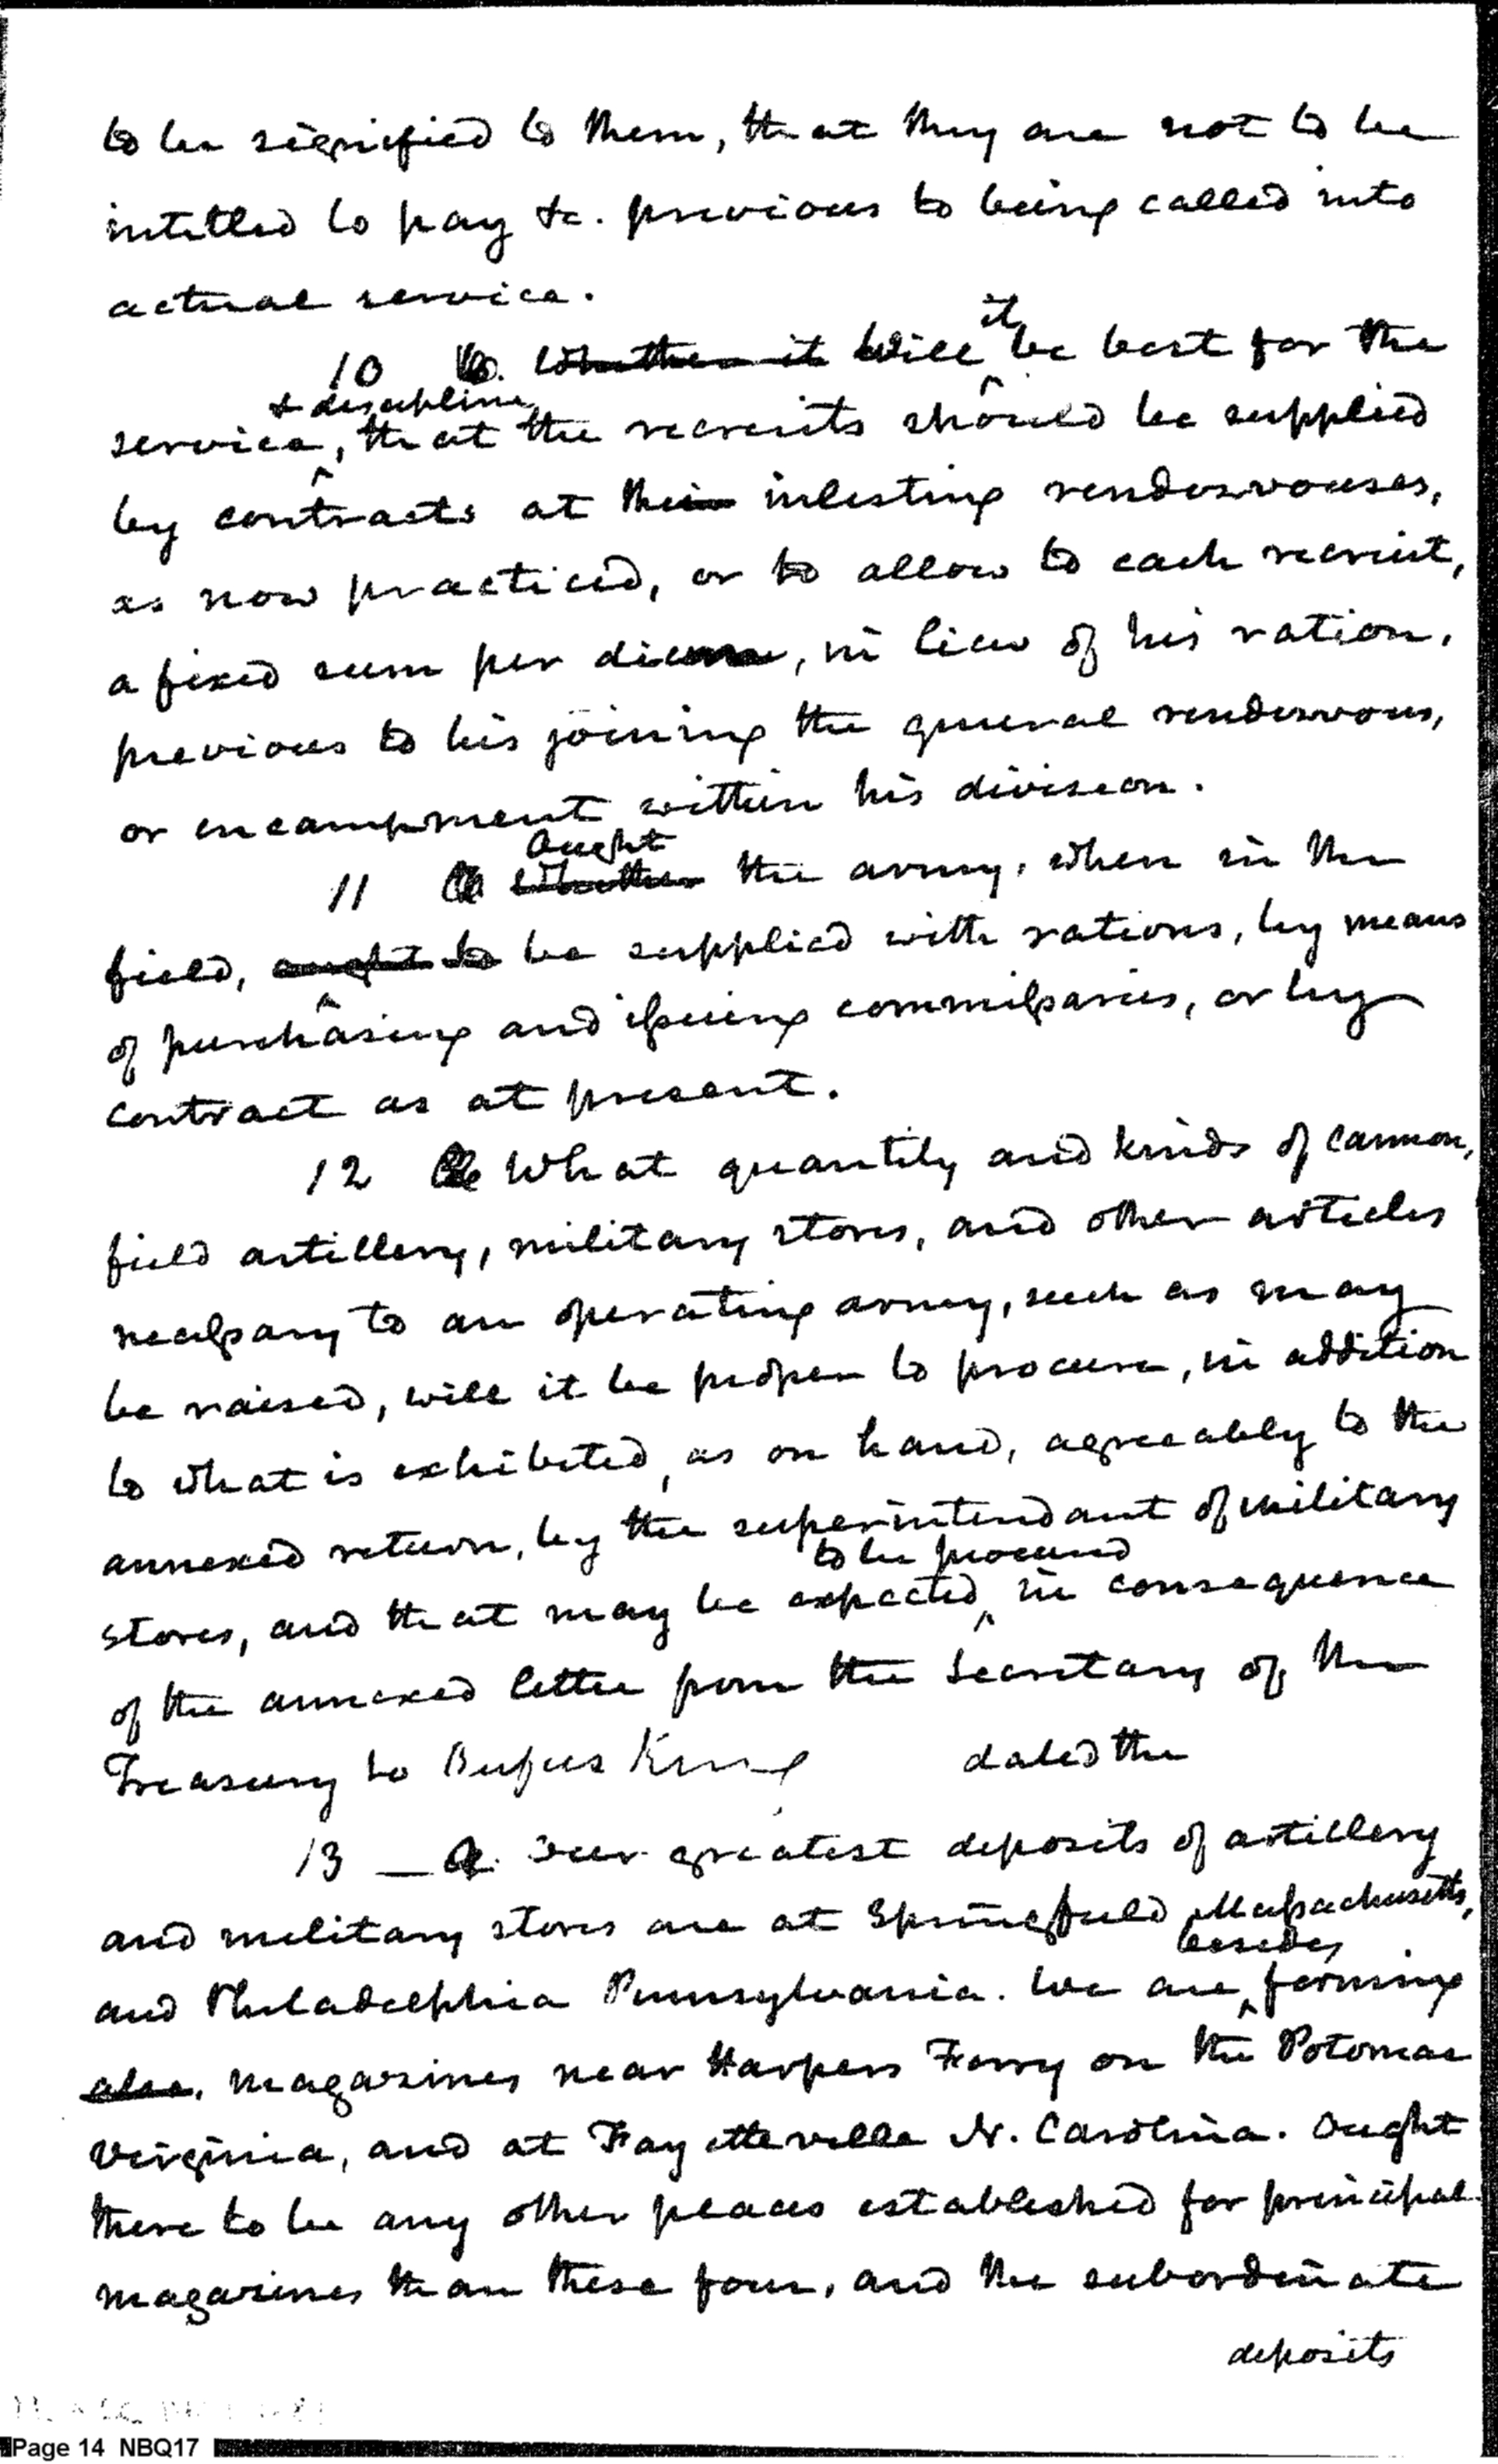 to be signified to them, that they are not to be
intitled to pay &c. previous to being called into
actual service.
10 Whether it Will it be best for the
& discipline
service, that the recruits should be supplied
by contracts at their inlisting rendezvouses,
as now practiced, or to allow to each recruit,
a fixed sum per diem, in lieu of his ration,
previous to his joining the general rendezvous,
or encampment within his division.
Ought
11 Whether the army, when in the
field, ought to be supplied with rations, by means
of purchasing and issuing commissaries, or by
contract as at present.
12 What quantity and kinds of cannon,
field artillery, military stores, and other articles
necessary to an operating army, such as may
be raised, will it be proper to procure, in addition
to what is exhibited, as on hand, agreeably to the
annexed return, by the superintendant of military
to be procured
stores, and that may be expected in consequence
of the annexed letter from the Secretary of the
Treasury to Rufus King dated the
13 — Our greatest deposits of artillery
and military stores are at Springfield Massachusetts,
besides
and Philadelphia Pennsylvania. We are forming
also, magazines near Harpers Ferry on the Potomac
Virginia, and at Fayetteville N. Carolina. Ought
there to be any other places established for principal
magazines than these four, and the subordinate
deposits
Page 14 NBQ17